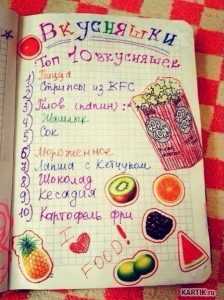 Вкусняшки
Топ 10 вкусняшек
1) Пицца
2) Стрипсы из KFC
3) Плов (папин) :
4) Шашлык
5) Сок
6) Мороженное
7) Лапша с Кетчупом
8) Шоколад
9) Кесадия
10) Картофель фри
I
FOOD!
KARTIK.ru